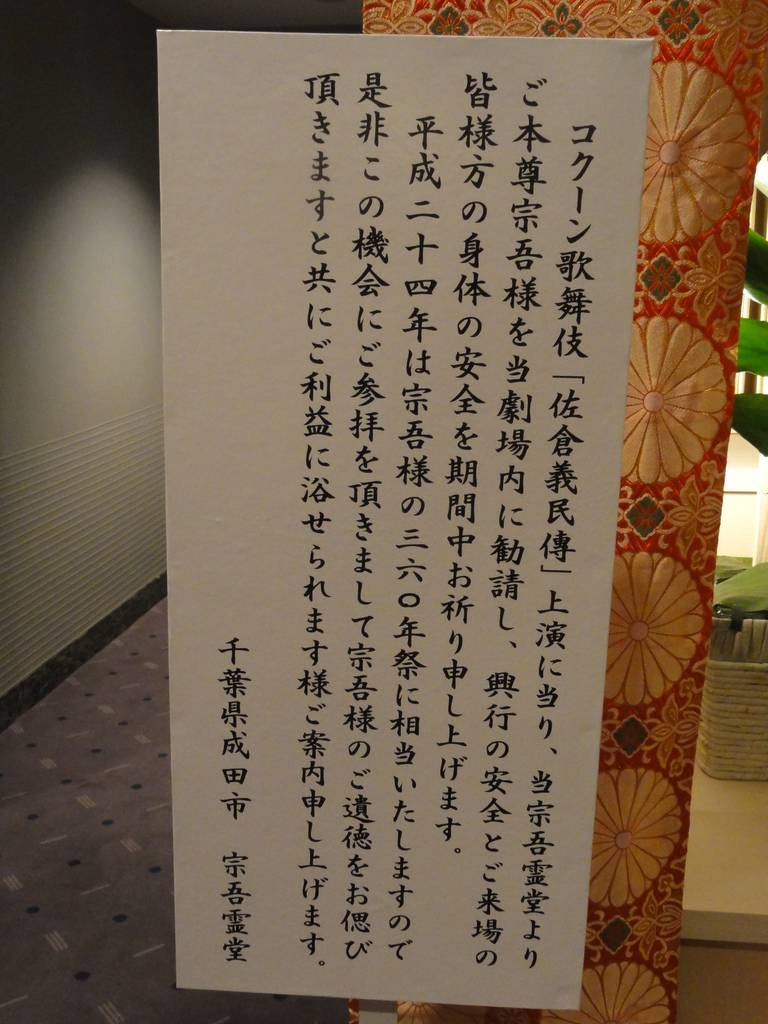 コクーン歌舞伎「佐倉義民傳」上演に当り、当宗吾霊堂より
ご本尊宗吾様を当劇場内に勧請し、興行の安全とご来場の
皆様方の身体の安全を期間中お祈り申し上げます。
平成二十四年は宗吾様の三六〇年祭に相当いたしますので
是非この機会にご参拝を頂きまして宗吾様のご遺徳をお偲び
頂きますと共にご利益に浴せられます様ご案内申し上げます。
千葉県成田市　宗吾霊堂